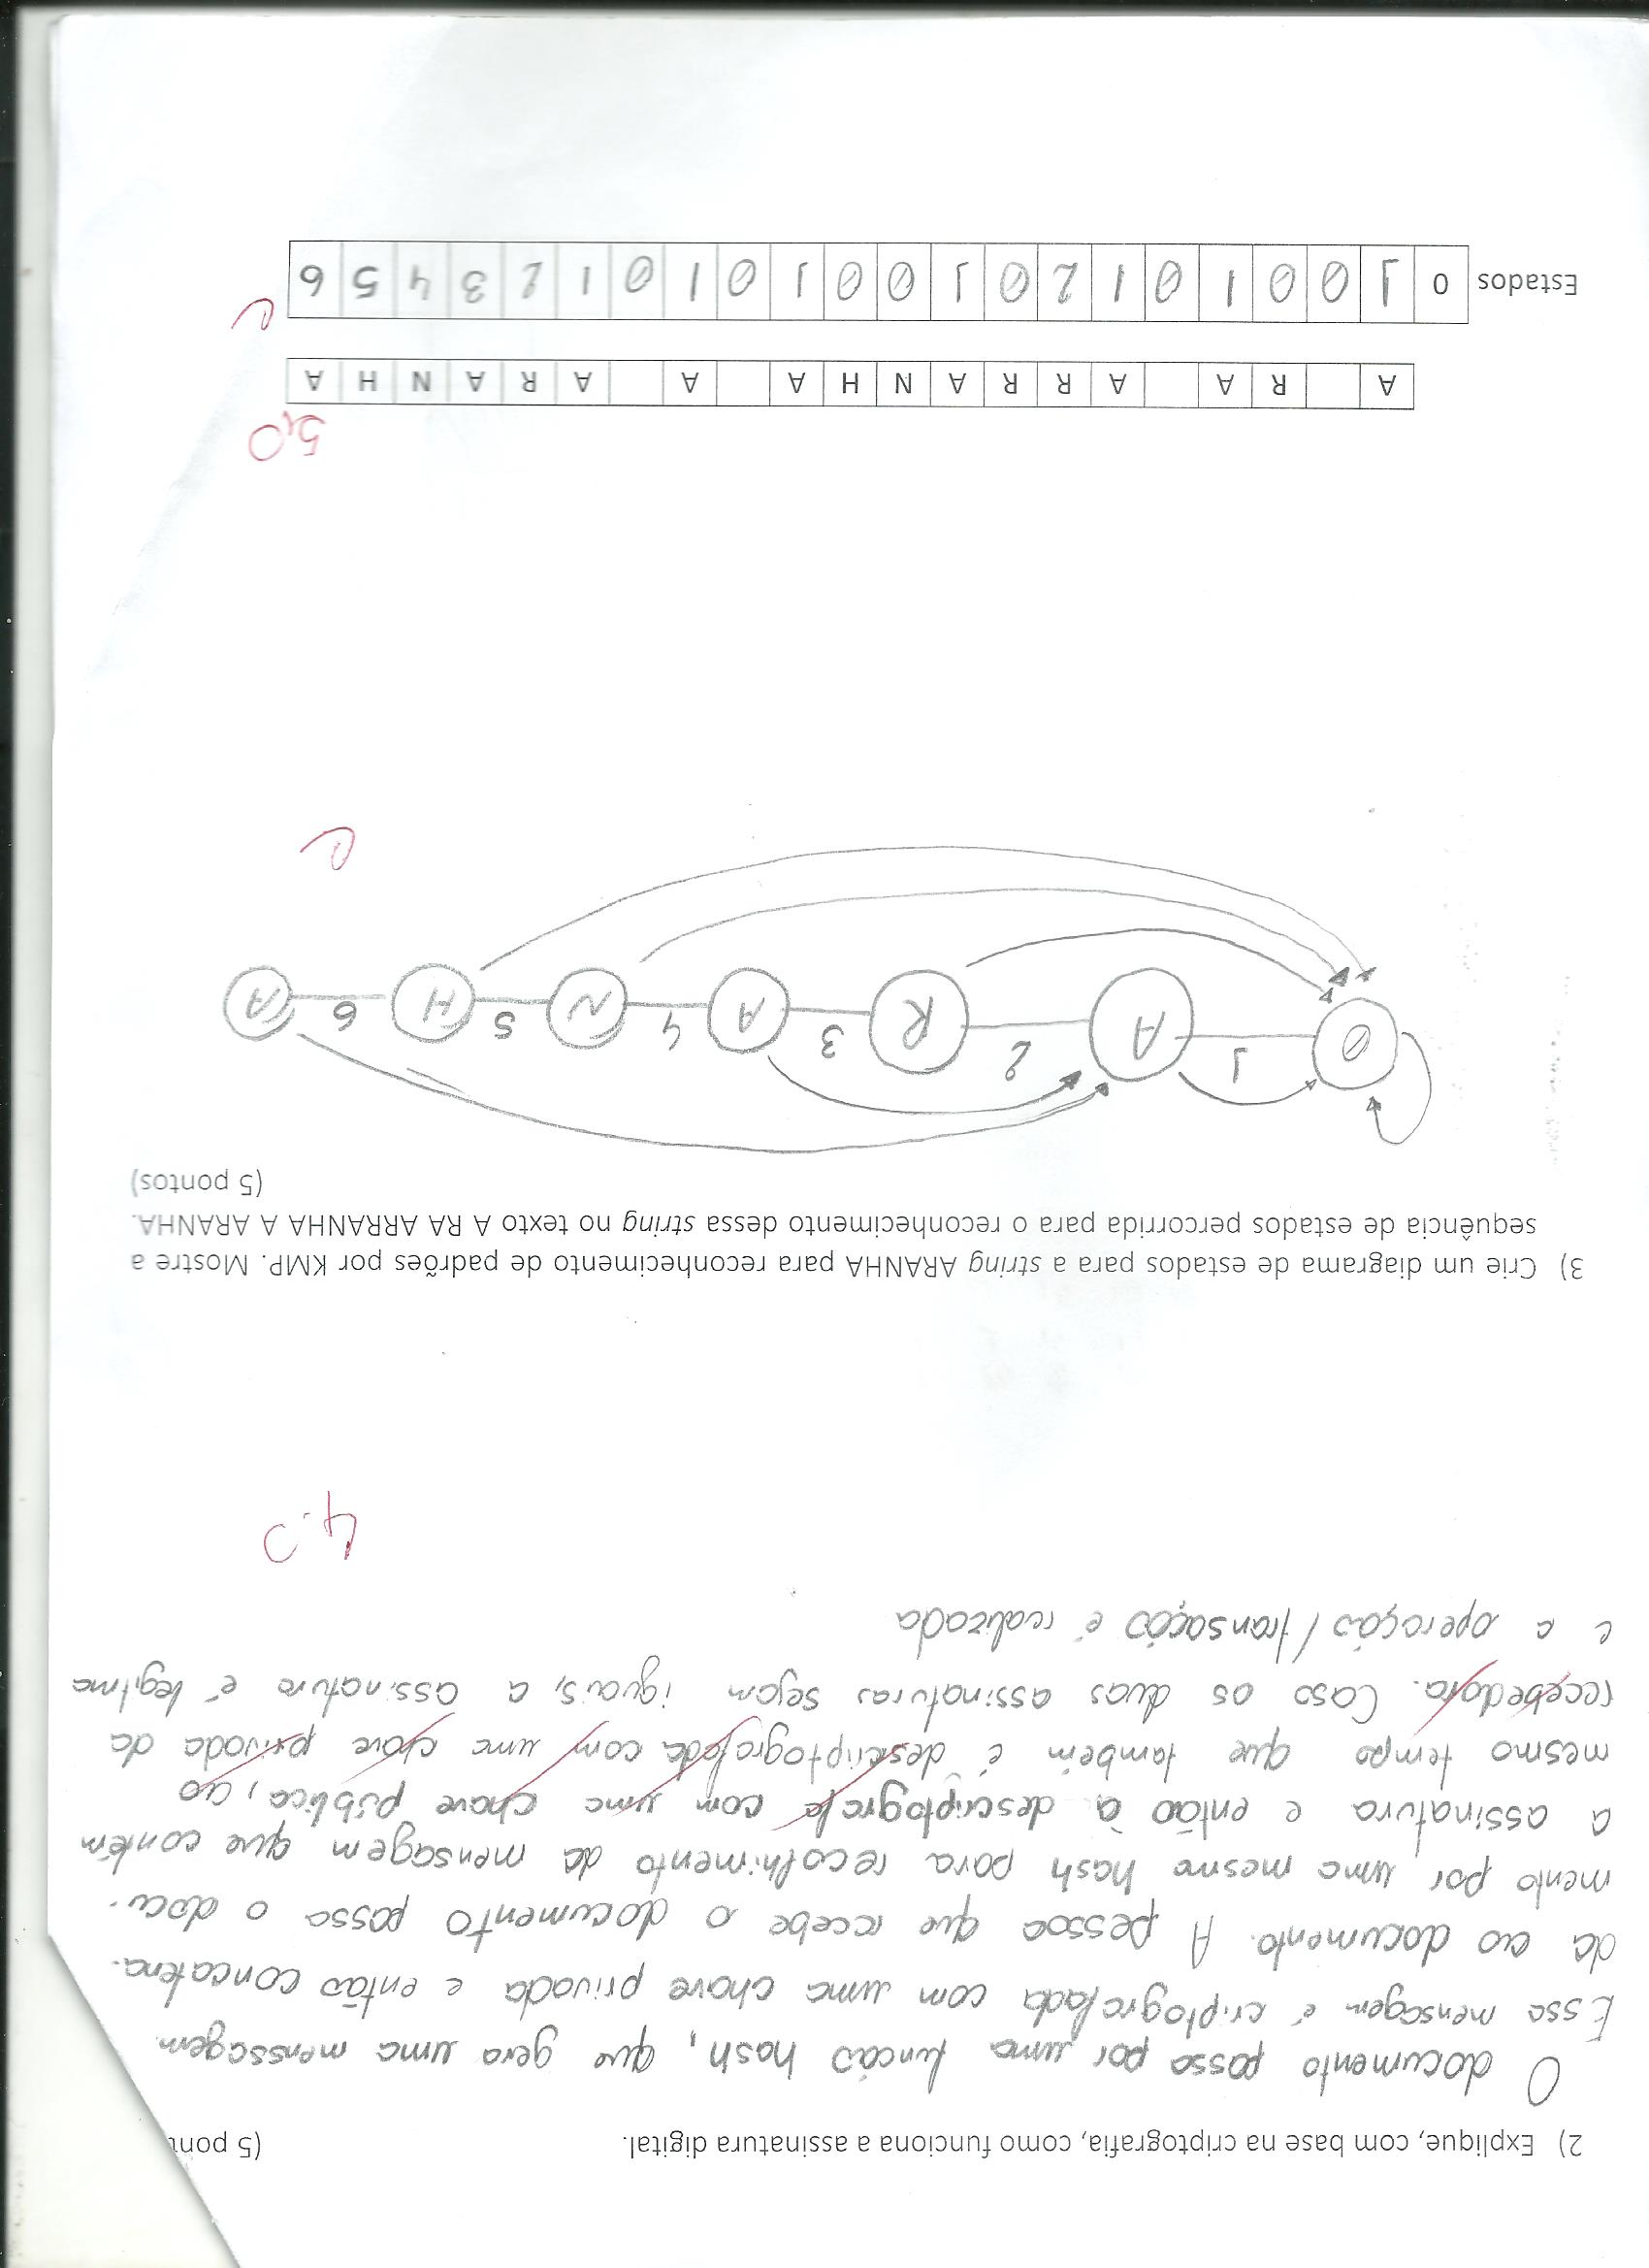 2) Explique, com base na criptografia, como funciona a assinatura digital. (5 pont
O documento passa por uma funcão hash, que gera uma menssagem.
Essa mensagem é criptografada com uma chave privada e então concatena-
da ao documento. A pessoa que recebe o documento passa o docu-
mento por uma mesma hash para recolhimento da mensagem que contém
a assinatura e então à descriptografa com uma chave pública, ao
mesmo tempo que também é descriptografada com uma chave privada da
recebedora. Caso as duas assinaturas sejam iguais, a assinatura é legitma
e a operação/transação é realizada
4.0
3) Crie um diagrama de estados para a string ARANHA para reconhecimento de padrões por KMP. Mostre a
sequência de estados percorrida para o reconhecimento dessa string no texto A RA ARRANHA A ARANHA.
(5 pontos)
0 1 A 2 R 3 A 4 N 5 H 6 A
C
5,0
A R A A R R A N H A A A R A N H A
C
Estados 0 1 0 0 1 0 1 2 0 1 0 0 1 0 1 0 1 2 3 4 5 6